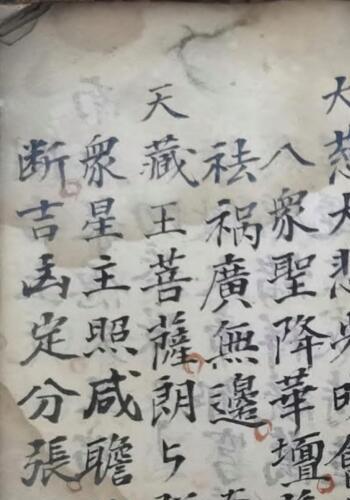 大慈大悲
八衆聖降華壇
祛禍廣無邊
天藏王菩薩朗
衆星主照咸瞻
断吉凶定分張